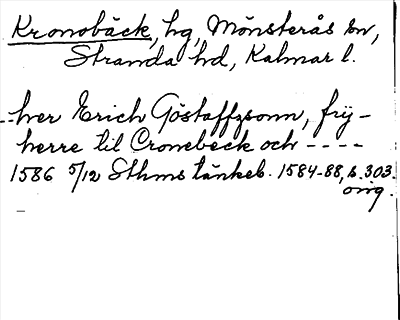 Kronobäck, hg, Mönsterås sn,
Stranda hd, Kalmar l.
--her Erich Göstaffzsonn, frij-
herre til Cronebeck och ----
1586 5/12 Sthms tänkeb. 1584-88, s. 303.
orig.